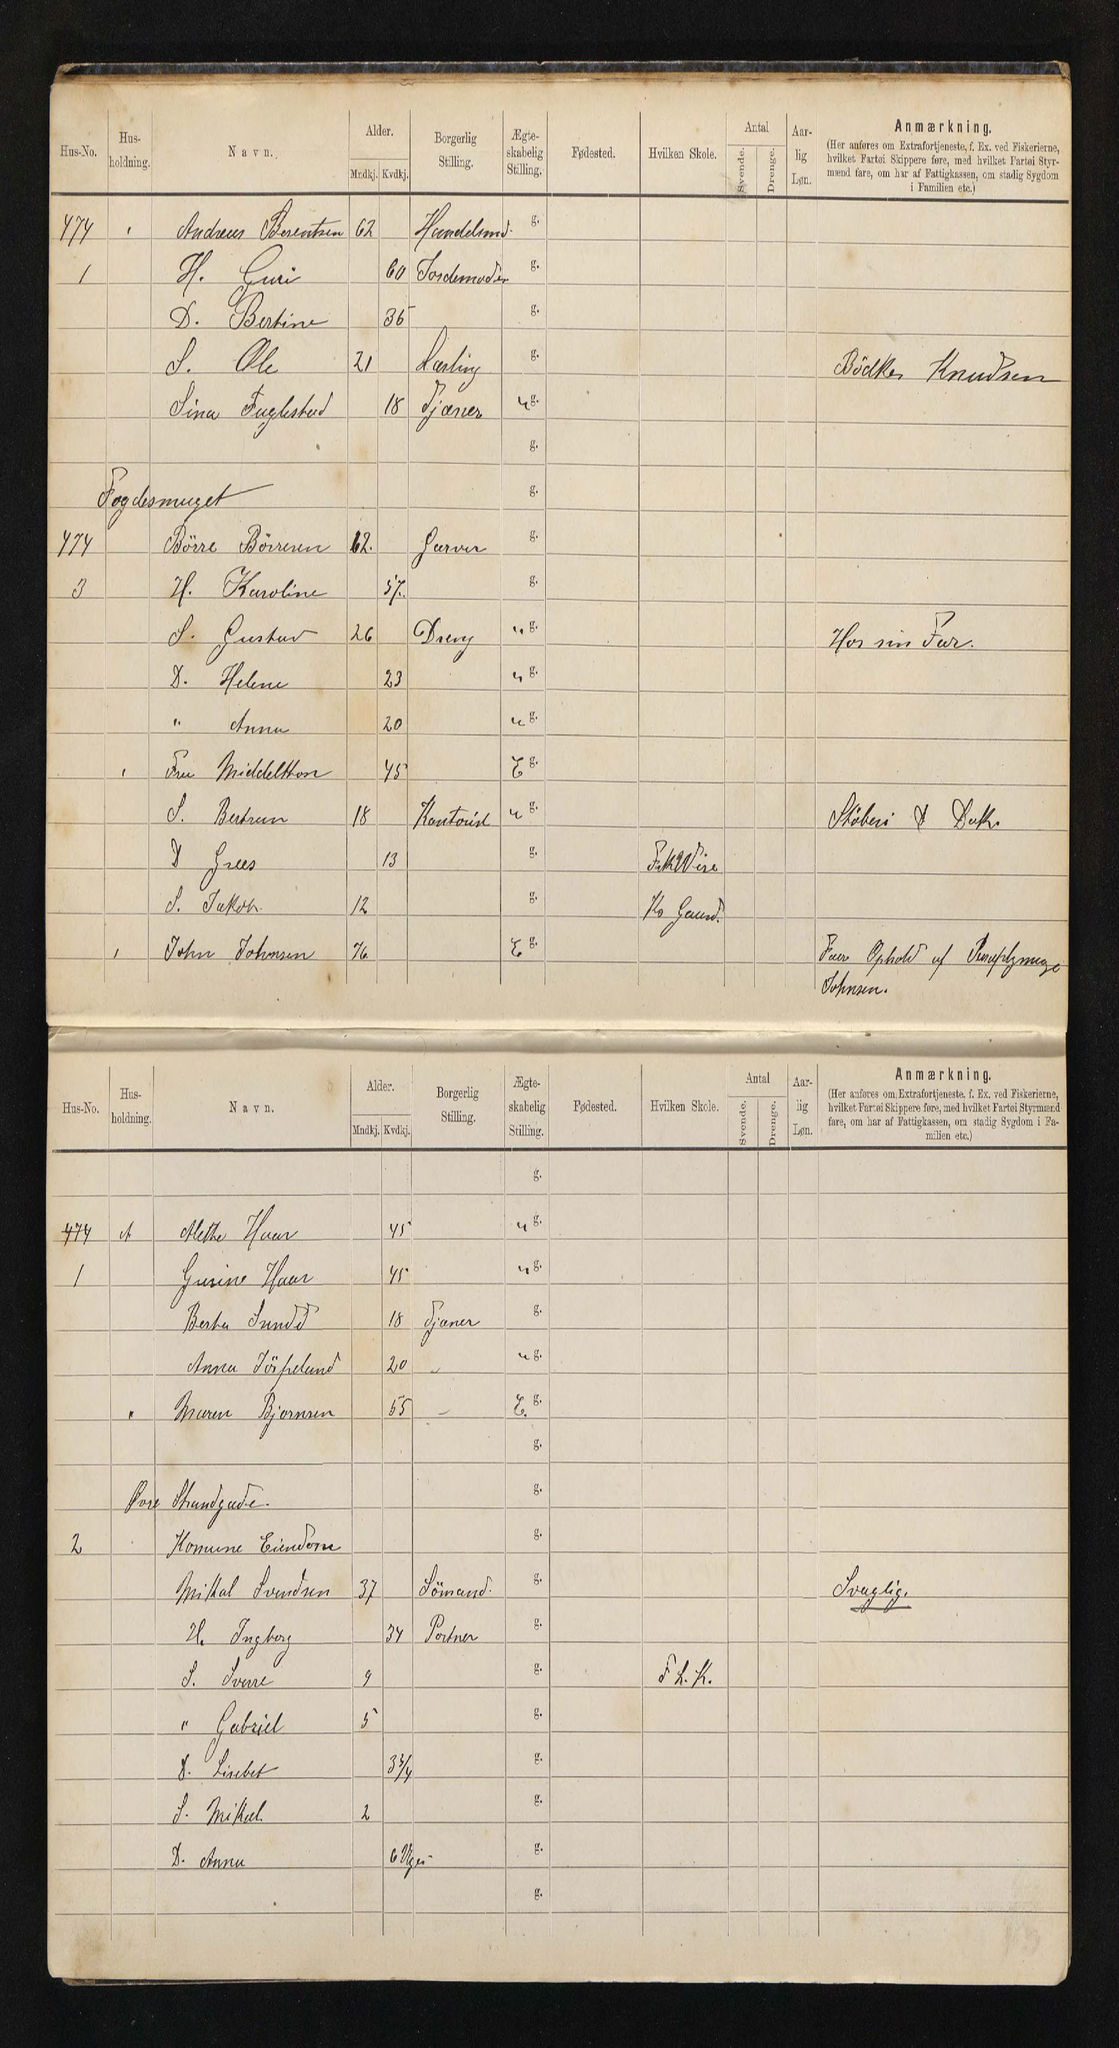 Hus-No. Hus-holdning. Navn. Alder. Mndkj. Kvdkj. Borgerlig Stilling. Ægte-skabelig Stilling. Fødested. Hvilken Skole. Antal Svende. Drenge. Aar-lig Løn. Anmærkning.
(Her anføres om Extrafortjeneste, f. Ex. ved Fiskerierne,
hvilket Fartøi Skippere føre, med hvilket Fartøi Styr-
mænd fare, om har af Fattigkassen, om stadig Sygdom
i Familien etc.)
474 " Andreas Berentsen 62 Handelsmd. g.
1 H. Guri 60 Jordemoder g.
D. Bertine 35 g.
S. Ole 21 Lærling g. Bödker Knudsen
Sina Fuglestad 18 Tjæner u g.
g.
Fogdesmuget g.
474 Börre Börresen 62. Garver g.
3 H. Karoline 57. g.
S. Gustav 26 Dreng u g. Hos sin Far.
D. Helene 23 u g.
" Anna 20 u g.
" Fru Middelthon 45 E g.
S. Bertram 18 Kontorist u g. Stöberi & Dok.
D 13 g.
S. Jakob 12 g. Ko
" John Johnsen 76 E g. Faar Ophold af
Johnsen.
Hus-No. Hus-holdning. Navn. Alder. Mndkj. Kvdkj. Borgerlig Stilling. Ægte-skabelig Stilling. Fødested. Hvilken Skole. Antal Svende. Drenge. Aar-lig Løn. Anmærkning.
(Her anføres om Extrafortjeneste. f. Ex. ved Fiskerierne,
hvilket Fartøi Skippere føre, med hvilket Fartøi Styrmænd
fare, om har af Fattigkassen, om stadig Sygdom i Fa-
milien etc.)
g.
474 A Alethe Haar 45 u g.
1 Gurine Haar 45 u g.
Berta Sundt 18 Tjæner g.
Anna Jörpeland 20 " u g.
" Maren Bjørnsen 55 " E. g.
g.
Øvre Strandgade. g.
2 Komune Eiendom g.
Mikal Svendsen 37 Sömand. g. Svaglig.
H. Ingborg 34 Portner g.
S. Sverre 9 g. F. L. K.
" Gabriel 5 g.
D. Lisebet 3 3/4 g.
S. Mikal. 2 g.
D. Anna 6 Uger g.
g.